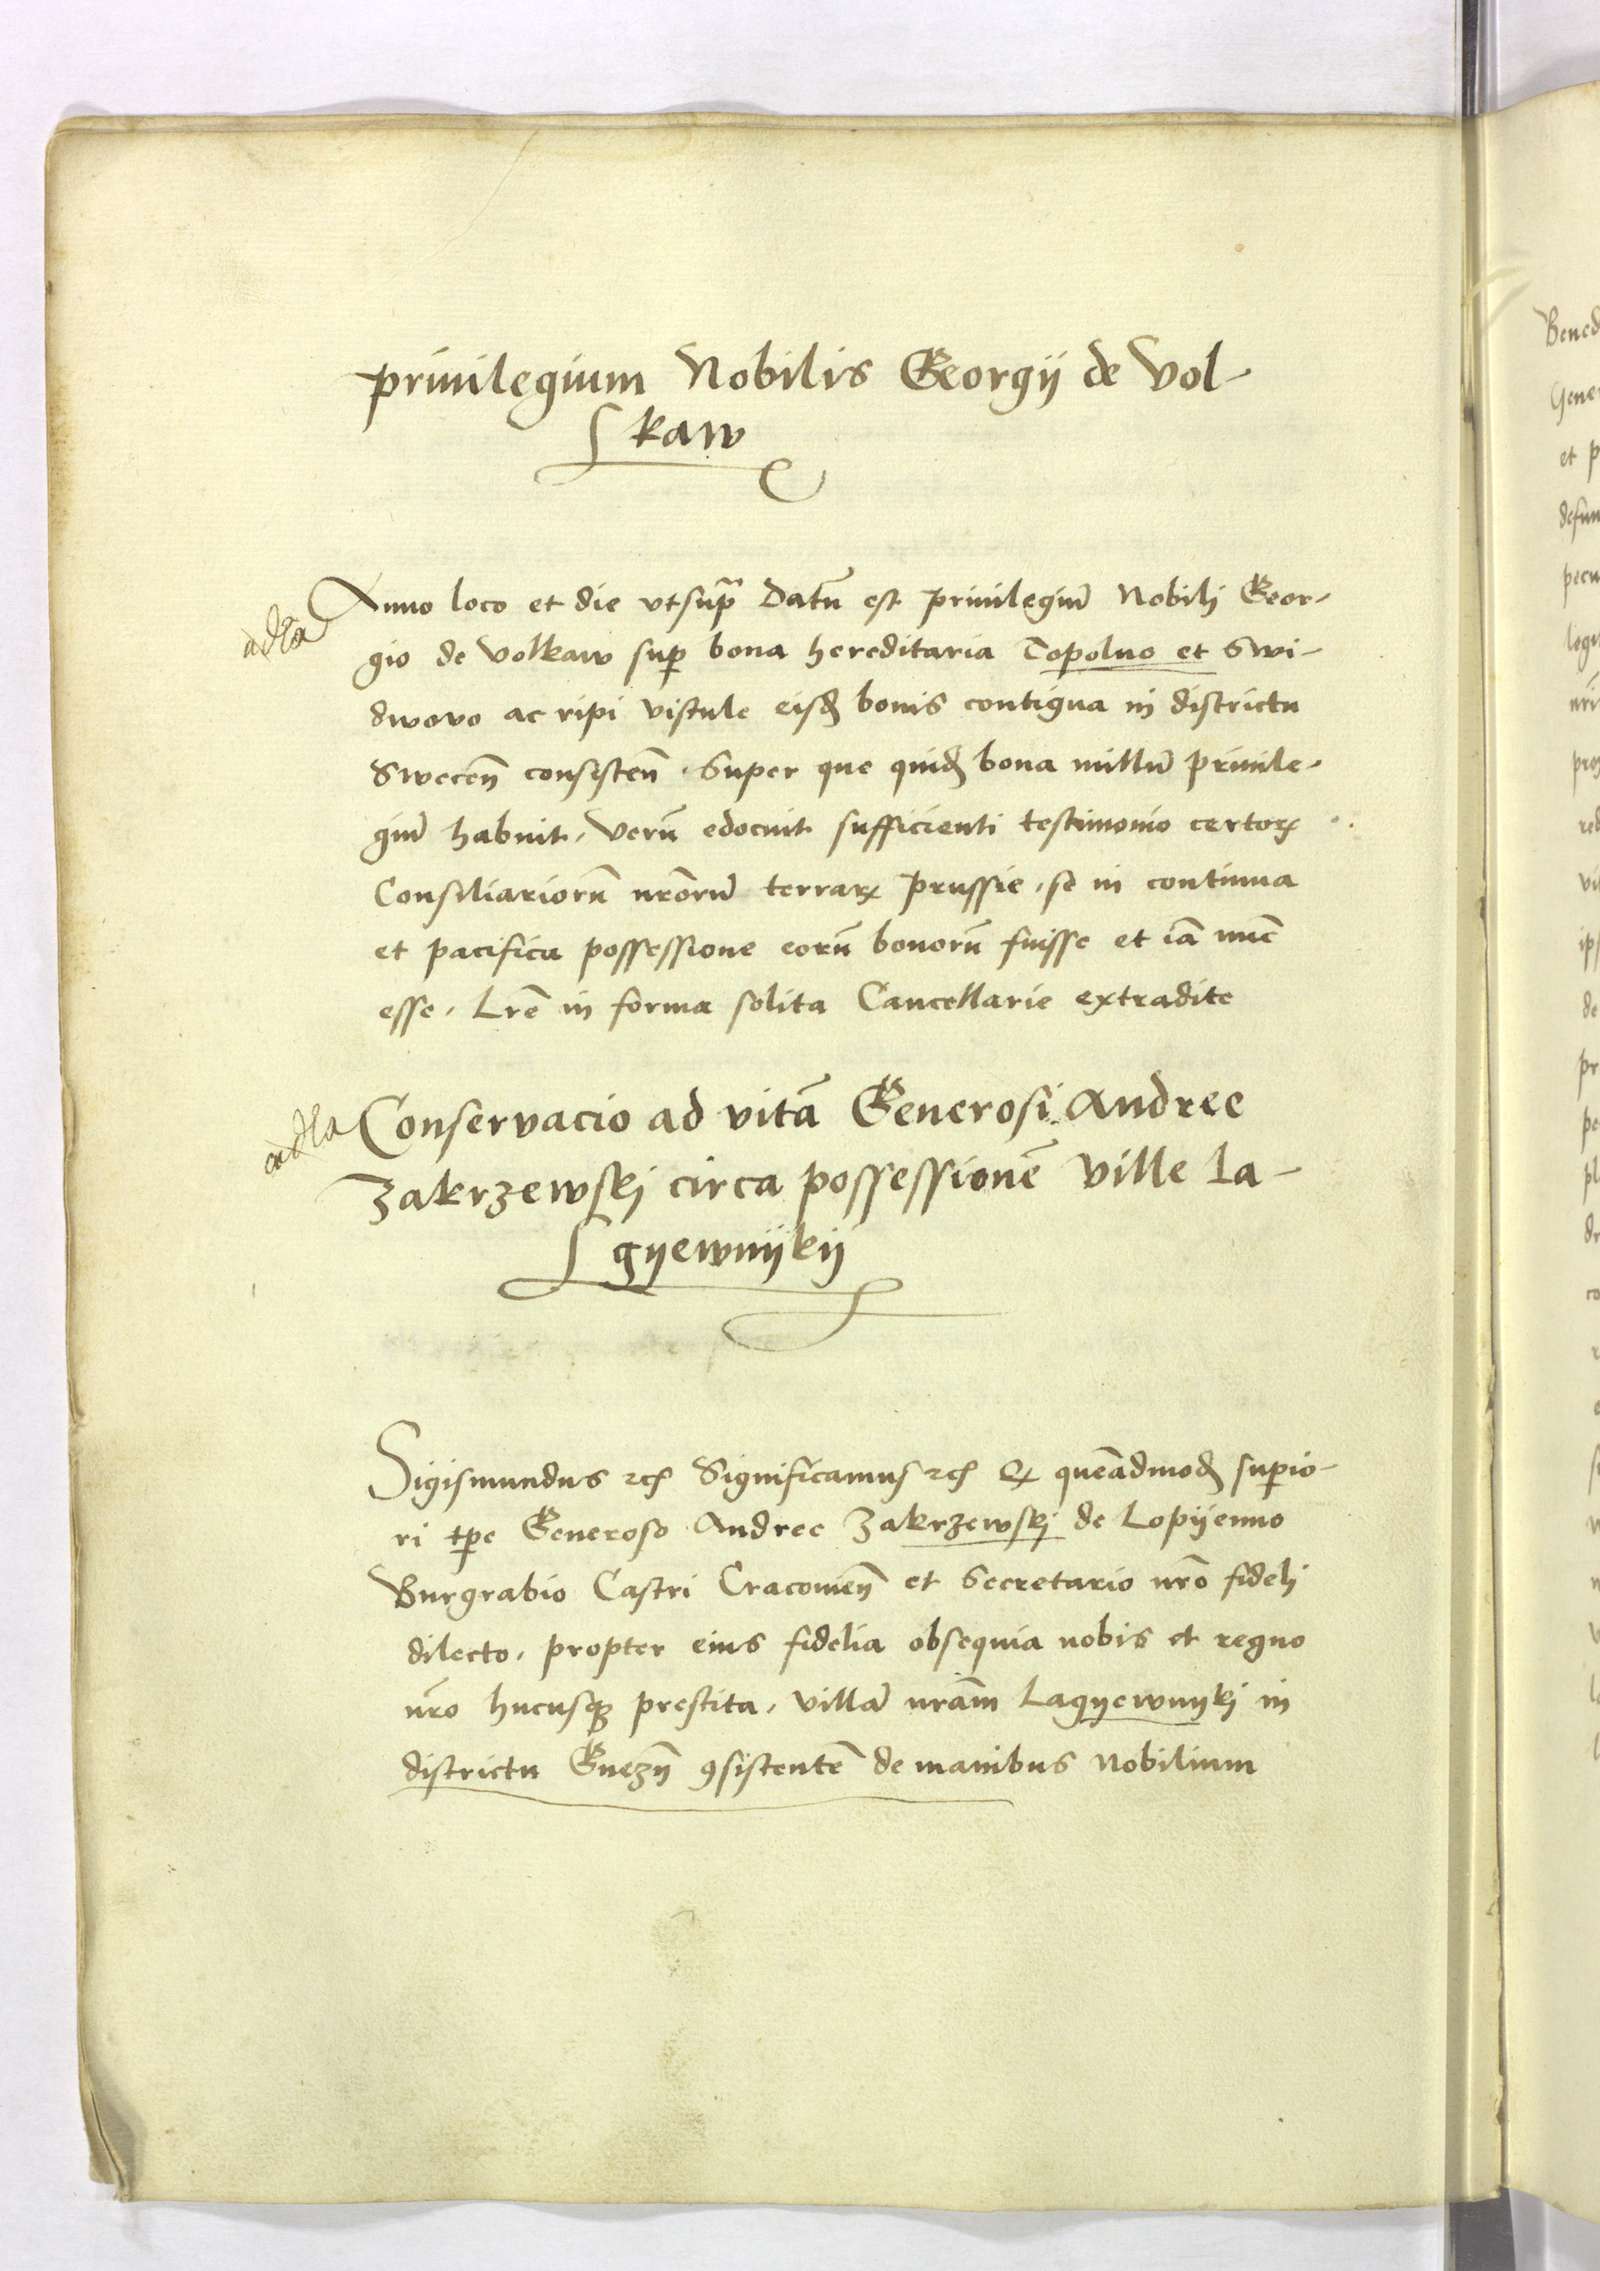 privilegium Nobilis Georgij de Vol-
kaw
Anno loco et die vtsupra Datũ est privilegiũ Nobilj Geor-
gio de Volkaw sup bona hereditaria Topolno et Swi-
dwovo ac ripi vistule eisđ bonis contigua in districtu
Swecen̄ consisten̄ . Super que quiđ bona nullũ privile-
giũ habuit, verũ edocuit sufficienti testimonio certoꝝ
Consiliariorũ nr̄orũ terraꝝ prussie, se in continua
et pacifica possessione eorũ bonorũ fuisse et iã nũc
esse, Lrē in forma solita Cancellarie extradite
Conservacio ad vitã Generosi Andree
Zakrzewskj circa possessionẽ ville La-
gyewnykij
Sigismundus rcȝ Significamus rcȝ Qꝫ queãdmođ superio-
ri tpe Generoso Andree Zakrzewskj de Lopyenno
Burgrabio Castri Cracovien̄ et Secretario nr̄o fidelj
dilecto, propter eius fidelia obsequia nobis et regno
nr̄o hucusqꝫ prestita, villã nr̄am Lagyewnykj in
districtu Gnezn̄ ꝯsistentẽ de manibus Nobilium